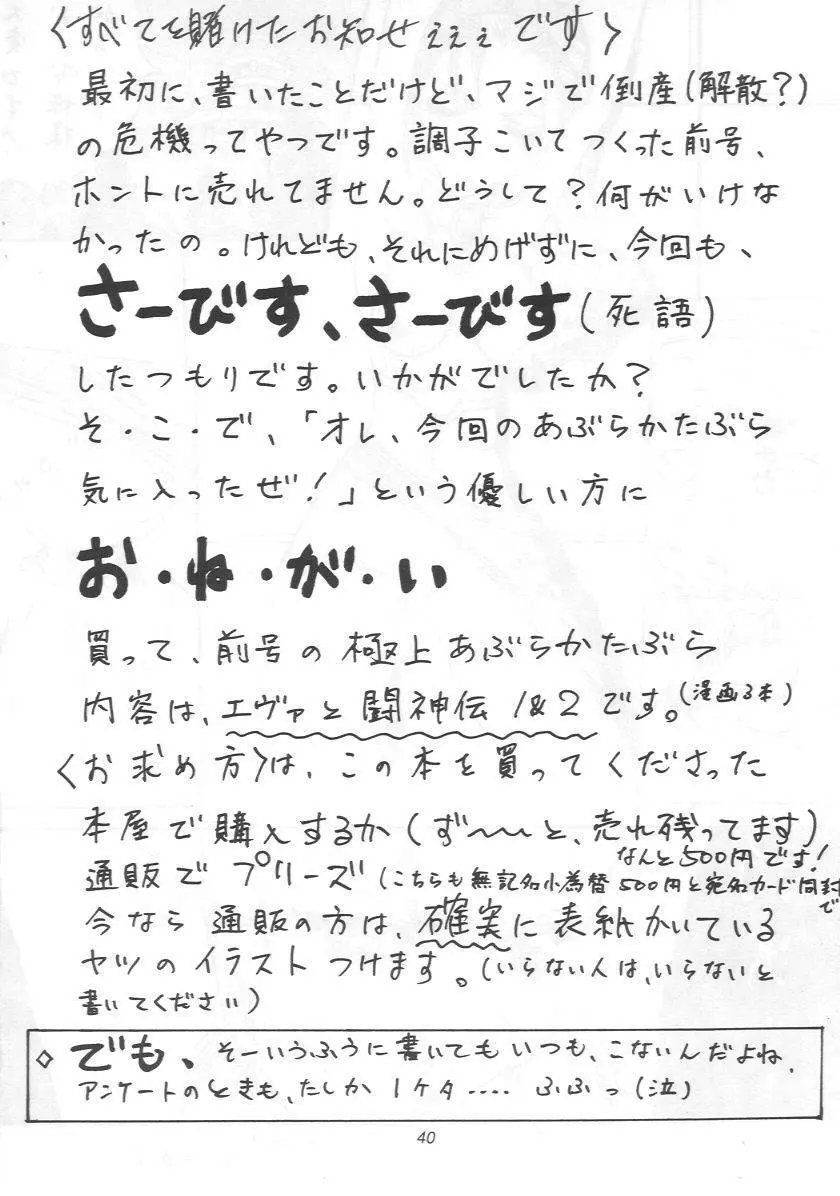 〈すべてを賭けたお知せぇぇぇです〉
最初に、書いたことだけど、マジで倒産(解散?)
の危機ってやつです。調子こいてつくった前号、
ホントに売れてません。どうして?何がいけな
かったの。けれども、それにめげずに、今回も、
さーびす、さーびす(死語)
したつもりです。いかがでしたか?
そ・こ・で、「オレ、今回のあぶらかたぶら
気に入ったぜ!」という優しい方に
お・ね・が・い
買って、前号の極上あぶらかたぶら
内容は、エヴァと闘神伝1&2です。(漫画3本)
〈お求め方〉は、この本を買ってくださった
本屋で購入するか(ず〜〜〜と、売れ残ってます)
なんと500円です!
通販でプリーズ(こちらも無記名小為替500円と宛名カード同封で
今なら通販の方は、確実に表紙かいている
ヤツのイラストつけます。(いらない人は、いらないと
書いてください)
◇でも、そーいうふうに書いてもいつも、こないんだよね、
アンケートのときも、たしか1ケタ…‥ふふっ(泣)
40